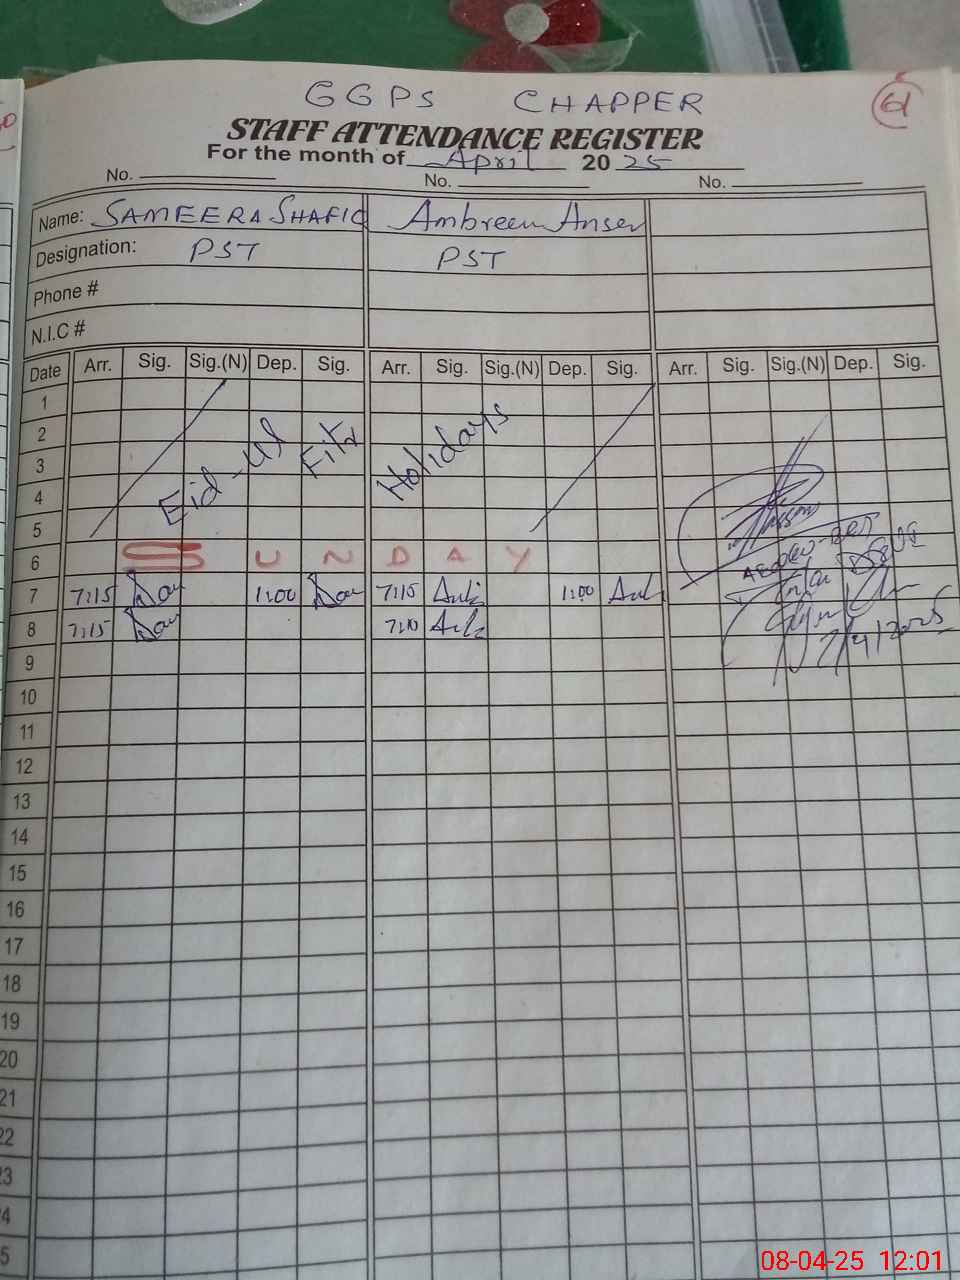 GGPS CHAPPER
61
STAFF ATTENDANCE REGISTER
For the month of April 2025
No. No. No.
Name: SAMEERA SHAFIQ Ambreen Anser
Designation: PST PST
Phone #
N.I.C #
Date Arr. Sig. Sig.(N) Dep. Sig. Arr. Sig. Sig.(N) Dep. Sig. Arr. Sig. Sig.(N) Dep. Sig.
1
2
3
4
5
Eid-ul Fitr Holidays
6 SUNDAY
7 7:15 1:00 7:15 1:00
8 7:15 7:10
7/4/2025
9
10
11
12
13
14
15
16
17
18
19
20
21
22
23
24
25
08-04-25 12:01